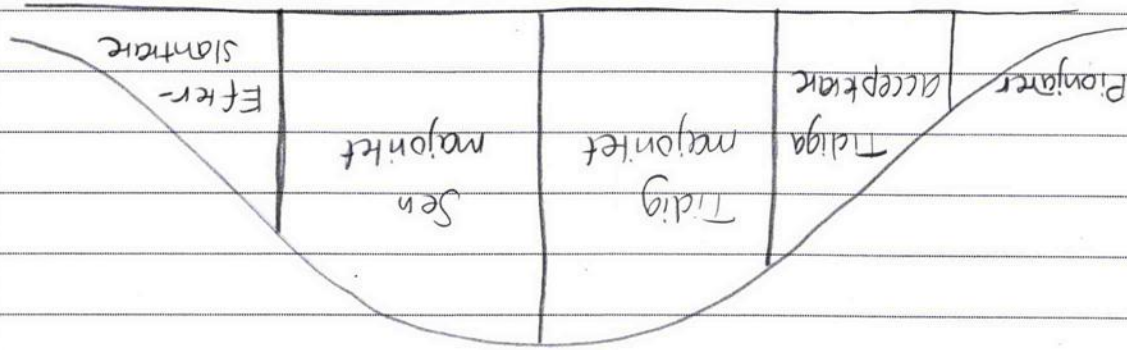 Pionjärer
Tidiga
acceptrare
Tidig
majoritet
Sen
majoritet
Efter-
släntrare